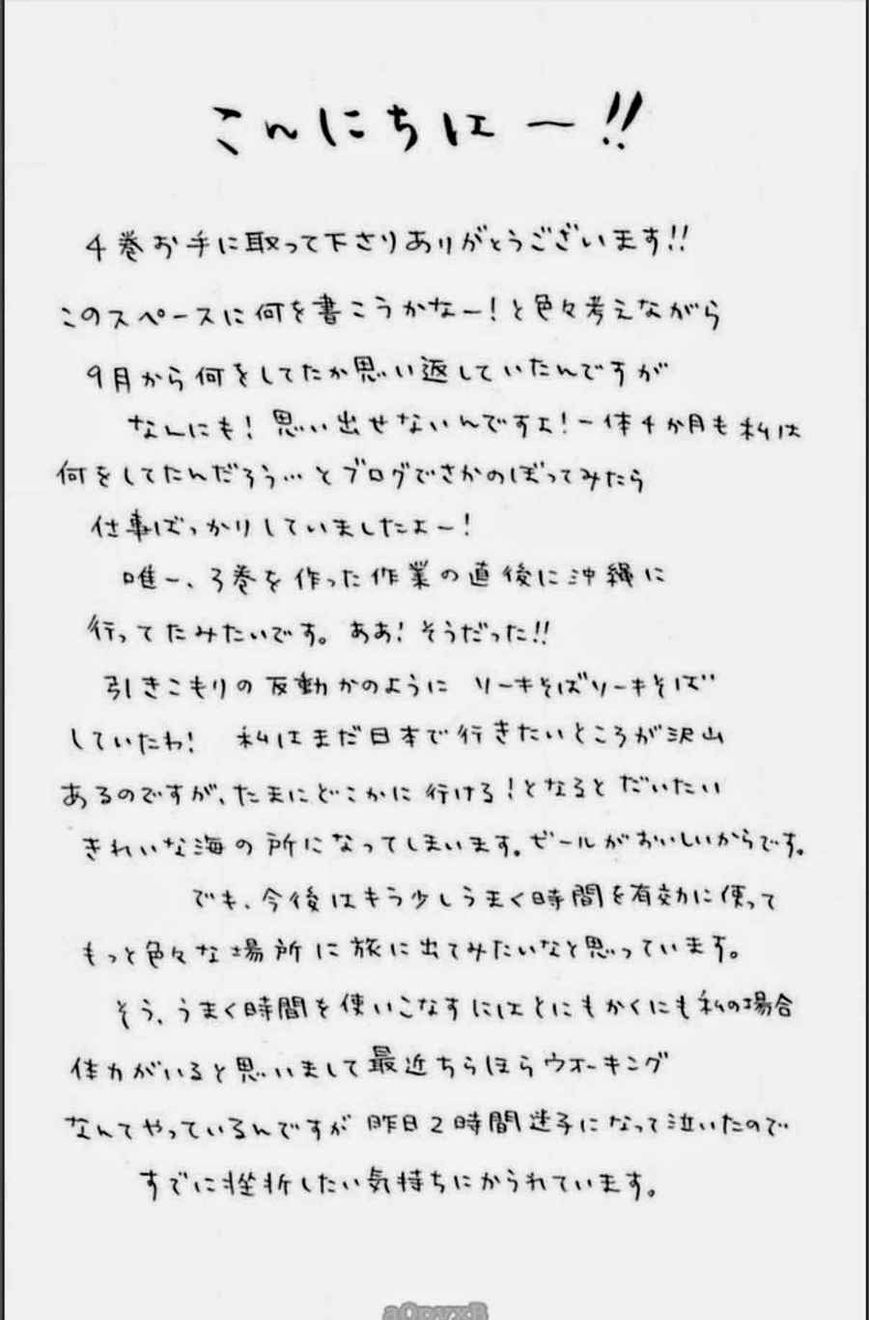 こんにちは〜!!
4巻お手に取って下さりありがとうございます!!
このスペースに何を書こうかなー!と色々考えながら
9月から何をしてたか思い返していたんですが
なんにも!思い出せないんですよ!一体4か月も私は
何をしてたんだろう…とブログでさかのぼってみたら
仕事ばっかりしていましたよー!
唯一、3巻を作った作業の直後に沖縄に
行ってたみたいです。ああ!そうだった!!
引きこもりの反動かのように ソーキそばソーキそば
していたわ! 私はまだ日本で行きたいところが沢山
あるのですが、たまにどこかに行ける!となるとだいたい
きれいな海の所になってしまいます。ビールがおいしいからです。
でも、今後はもう少しうまく時間を有効に使って
もっと色々な場所に旅に出てみたいなと思っています。
そう、うまく時間を使いこなすにはとにもかくにも私の場合
体力がいると思いまして最近ちらほらウォーキング
なんてやっているんですが昨日2時間迷子になって泣いたので
すでに挫折したい気持ちにかられています。